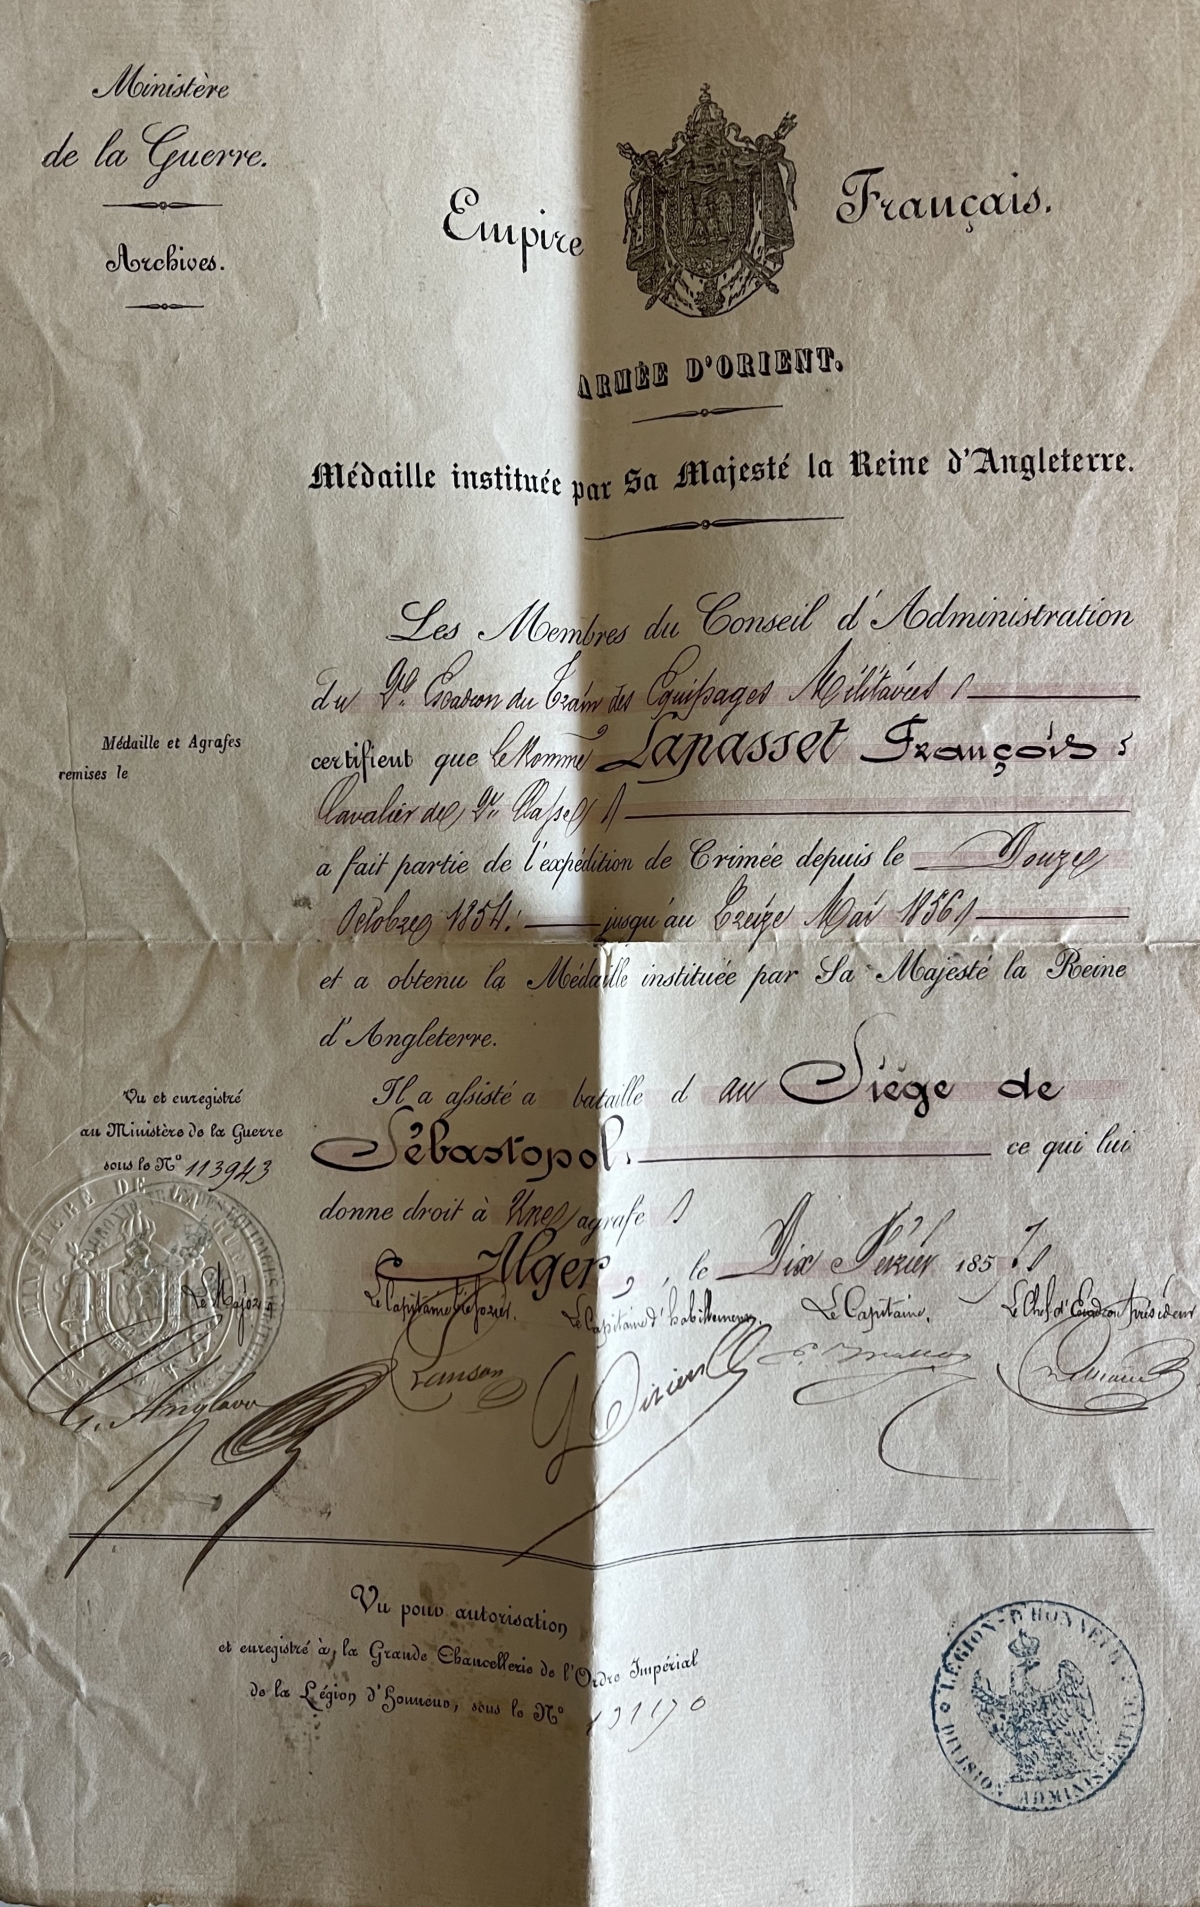 Ministère
de la Guerre.
Archives.
Empire Français.
ARMÉE D'ORIENT.
Médaille instituée par Sa Majesté la Reine d'Angleterre.
Les Membres du Conseil d'Administration
du 2e Escadron du Train des Equipages Militaires
Médaille et Agrafes
remises le
certifient que le Nommé Lapasset François
Cavalier de 2e Classe
a fait partie de l'expédition de Crimée depuis le Douze
Octobre 1854. jusqu'au Treize Mai 1856
et a obtenu la Médaille instituée par Sa Majesté la Reine
d'Angleterre.
Il a assisté a bataille d au Siége de
Sébastopol. ce qui lui
donne droit à Une agrafe
Vu et enregistré
au Ministère de la Guerre
sous le No 113943
Alger, le Dix Février 1857
MINISTÈRE DE LA GUERRE
Le Major
Le Capitaine Trésorier.
Le Capitaine d'habillement,
Le Capitaine,
Le Chef d'Escadron Président
Vu pour autorisation
et enregistré à la Grande Chancellerie de l'Ordre Impérial
de la Légion d'Honneur, sous le No
LÉGION D'HONNEUR
DIVISION ADMINISTRATIVE